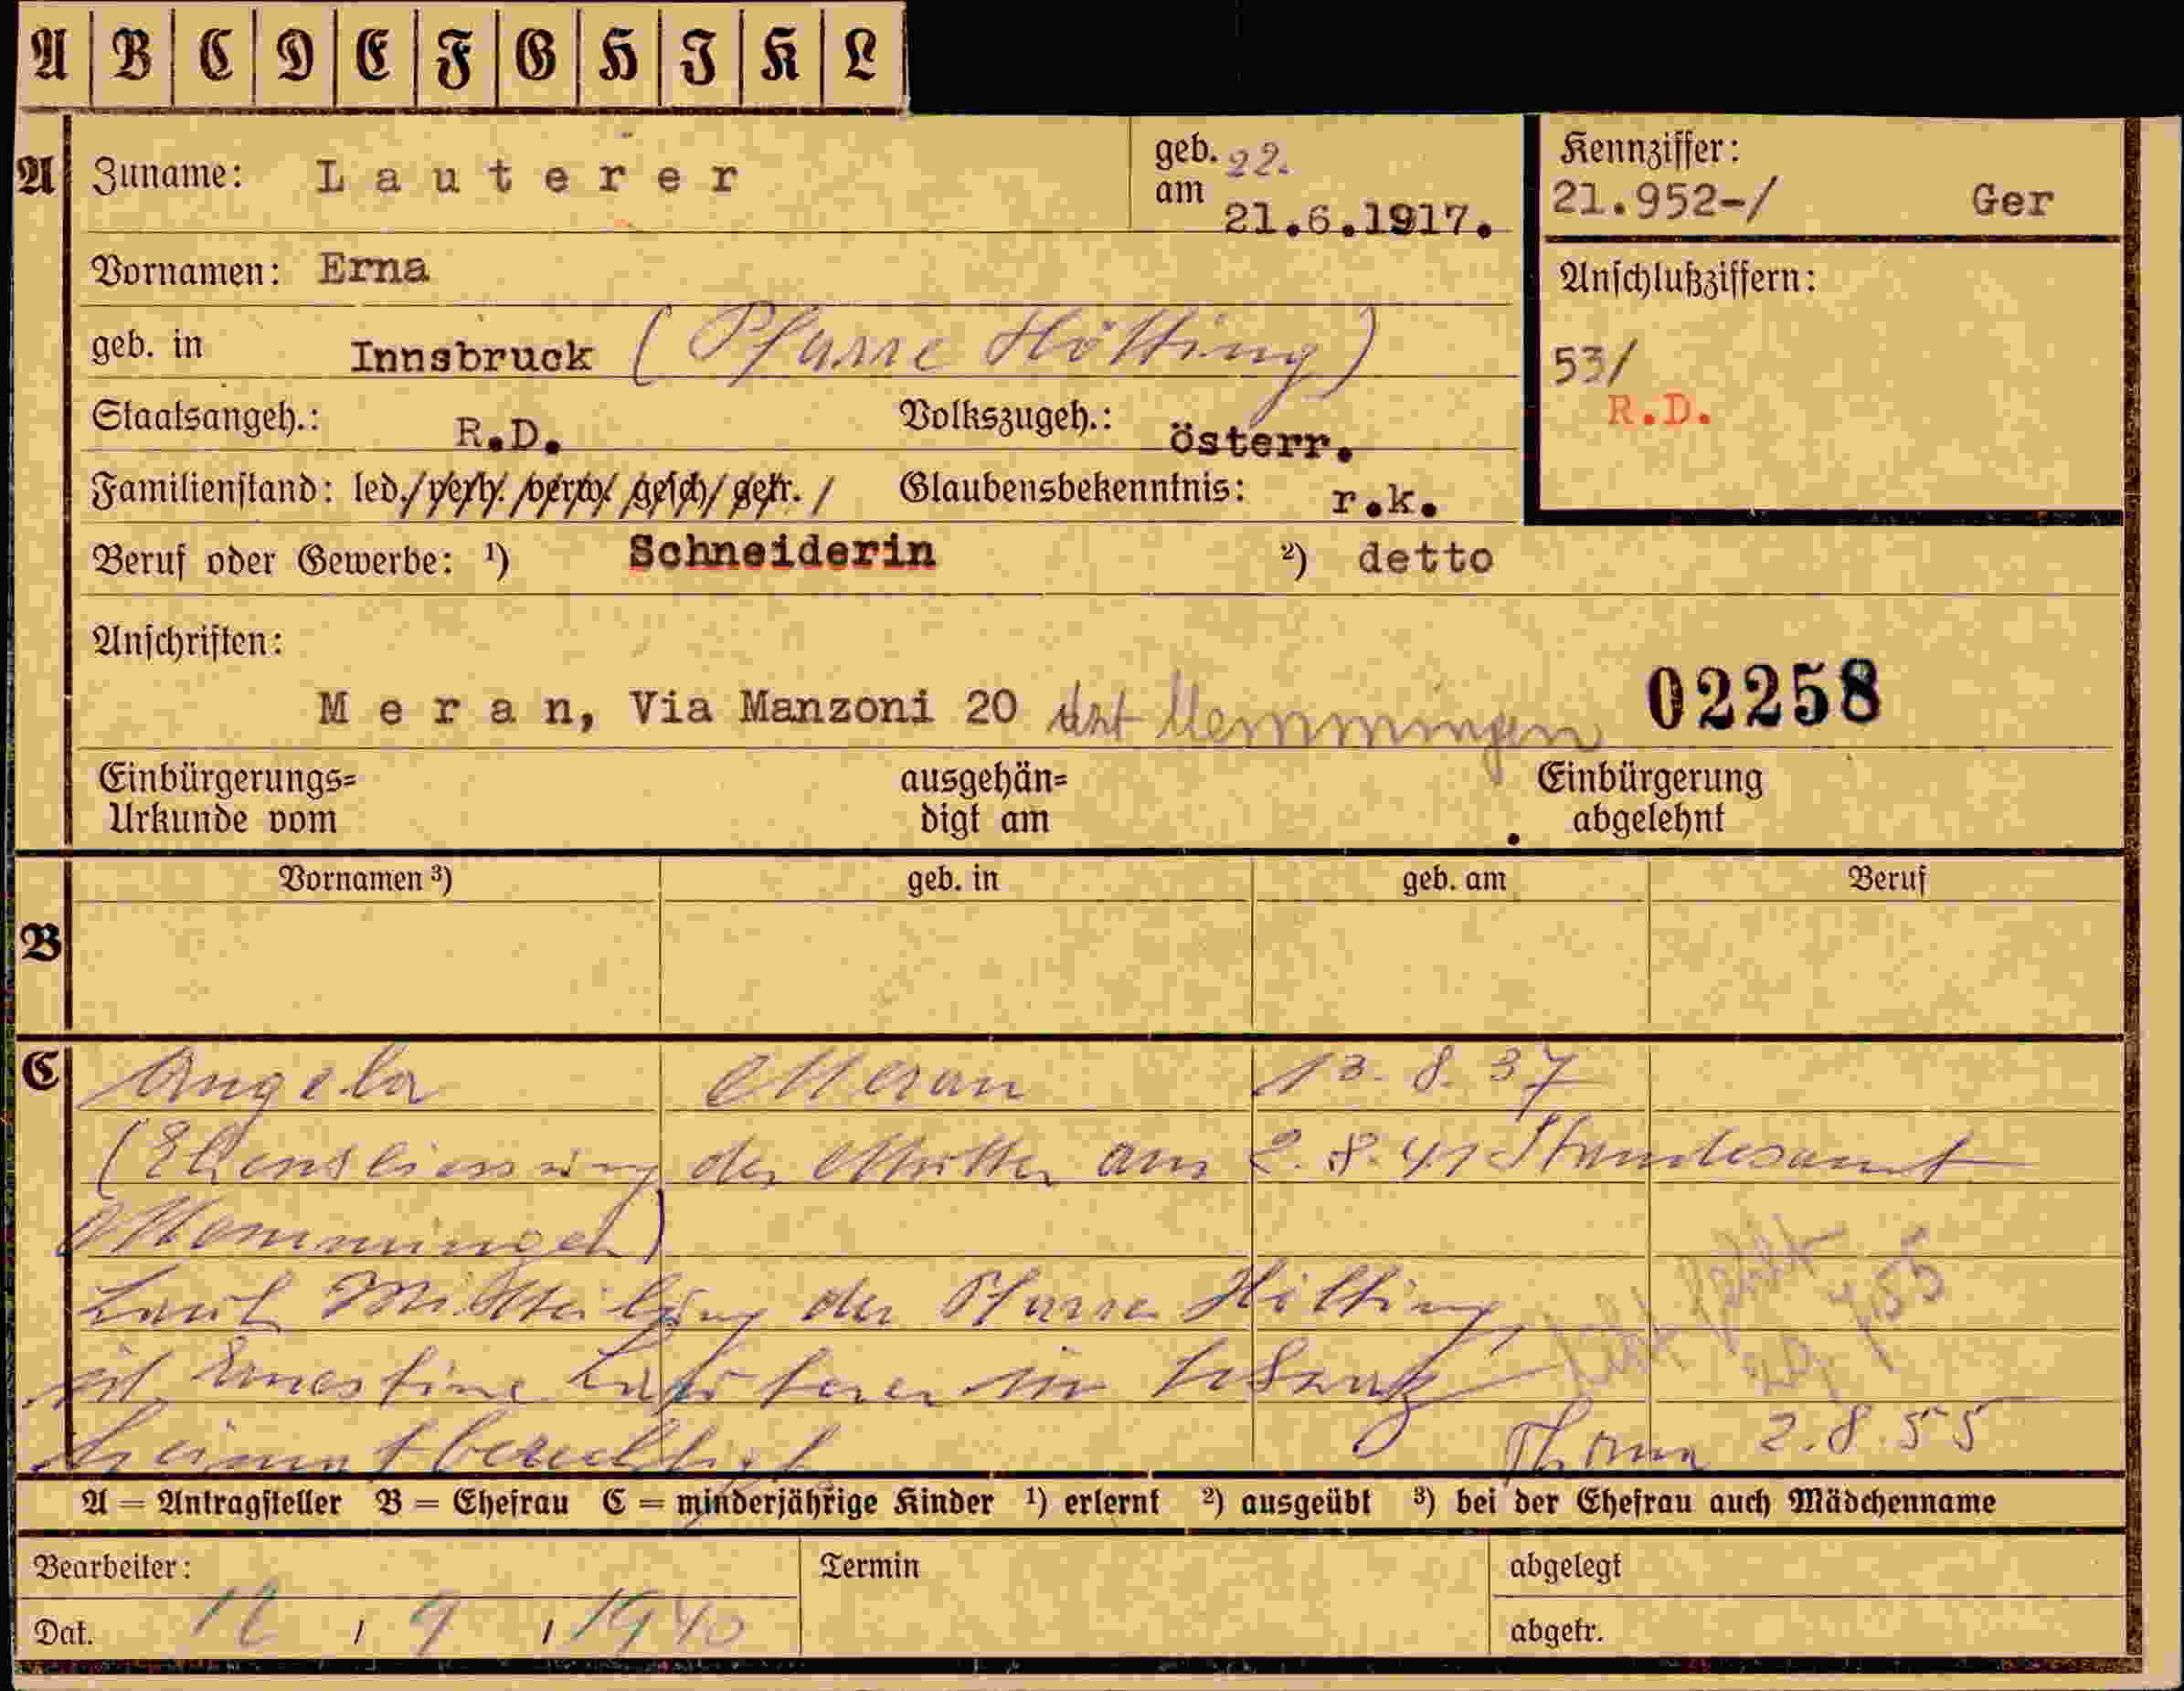 A B C D E F G H I K L
A Zuname: Lauterer geb. am 22. 21.6.1917.
Kennziffer: 21.952-/ Ger
Vornamen: Erna
Anschlußziffern:
geb. in Innsbruck (Pfarre Hötting)
53/
R.D.
Staatsangeh.: R.D. Volkszugeh.: österr.
Familienstand: led./verh./verw./gesch/getr./ Glaubensbekenntnis: r.k.
Beruf oder Gewerbe: ¹) Schneiderin ²) detto
Anschriften:
Meran, Via Manzoni 20 Memmingen 02258
Einbürgerungs=
Urkunde vom
ausgehän=
digt am
Einbürgerung
abgelehnt
Vornamen ³) geb. in geb. am Beruf
B
C Angela Meran 13.8.37
(Ehensliessung der Mutter am 2.8.41 Standesamt
Memmingen)
Laut Mitteilung der Pfarre Hötting
ist Ernestine in
heimatberechtigt
Thoma 2.8.55
A = Antragsteller B = Ehefrau C = minderjährige Kinder ¹) erlernt ²) ausgeübt ³) bei der Ehefrau auch Mädchenname
Bearbeiter: Termin abgelegt
Dat. / 9 / 1940 abgetr.